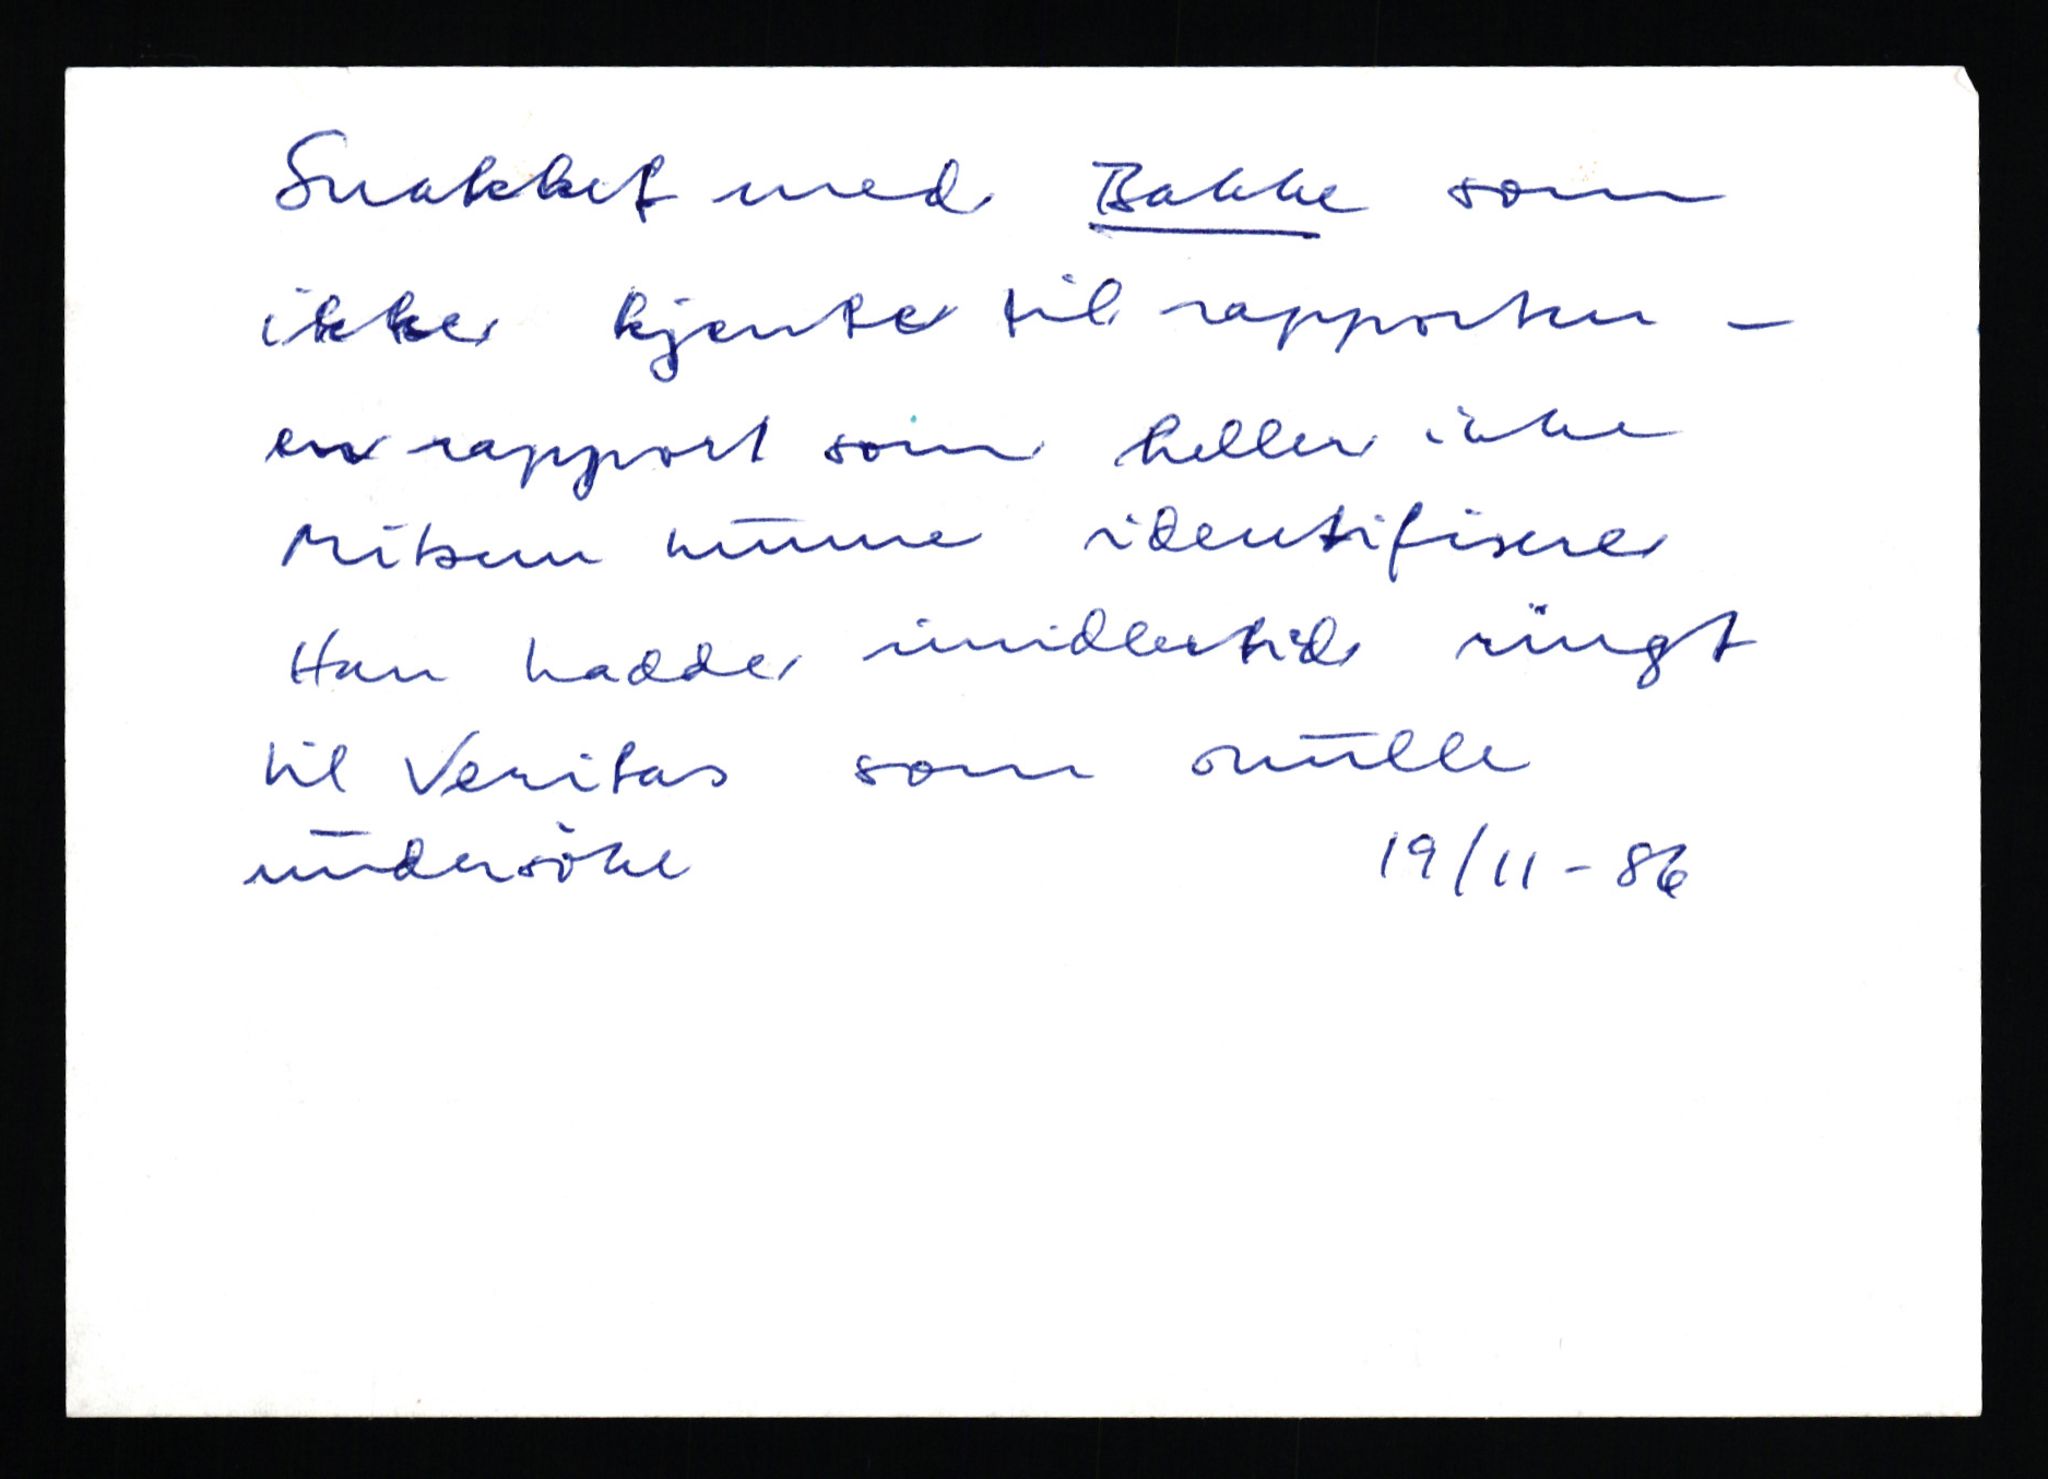 Snakket med Bakke som
ikke kjente til rapporten –
en rapport som heller ikke
kunne identifisere
Han hadde imidlertid ringt
til Veritas som skulle
undersöke 19/11-86